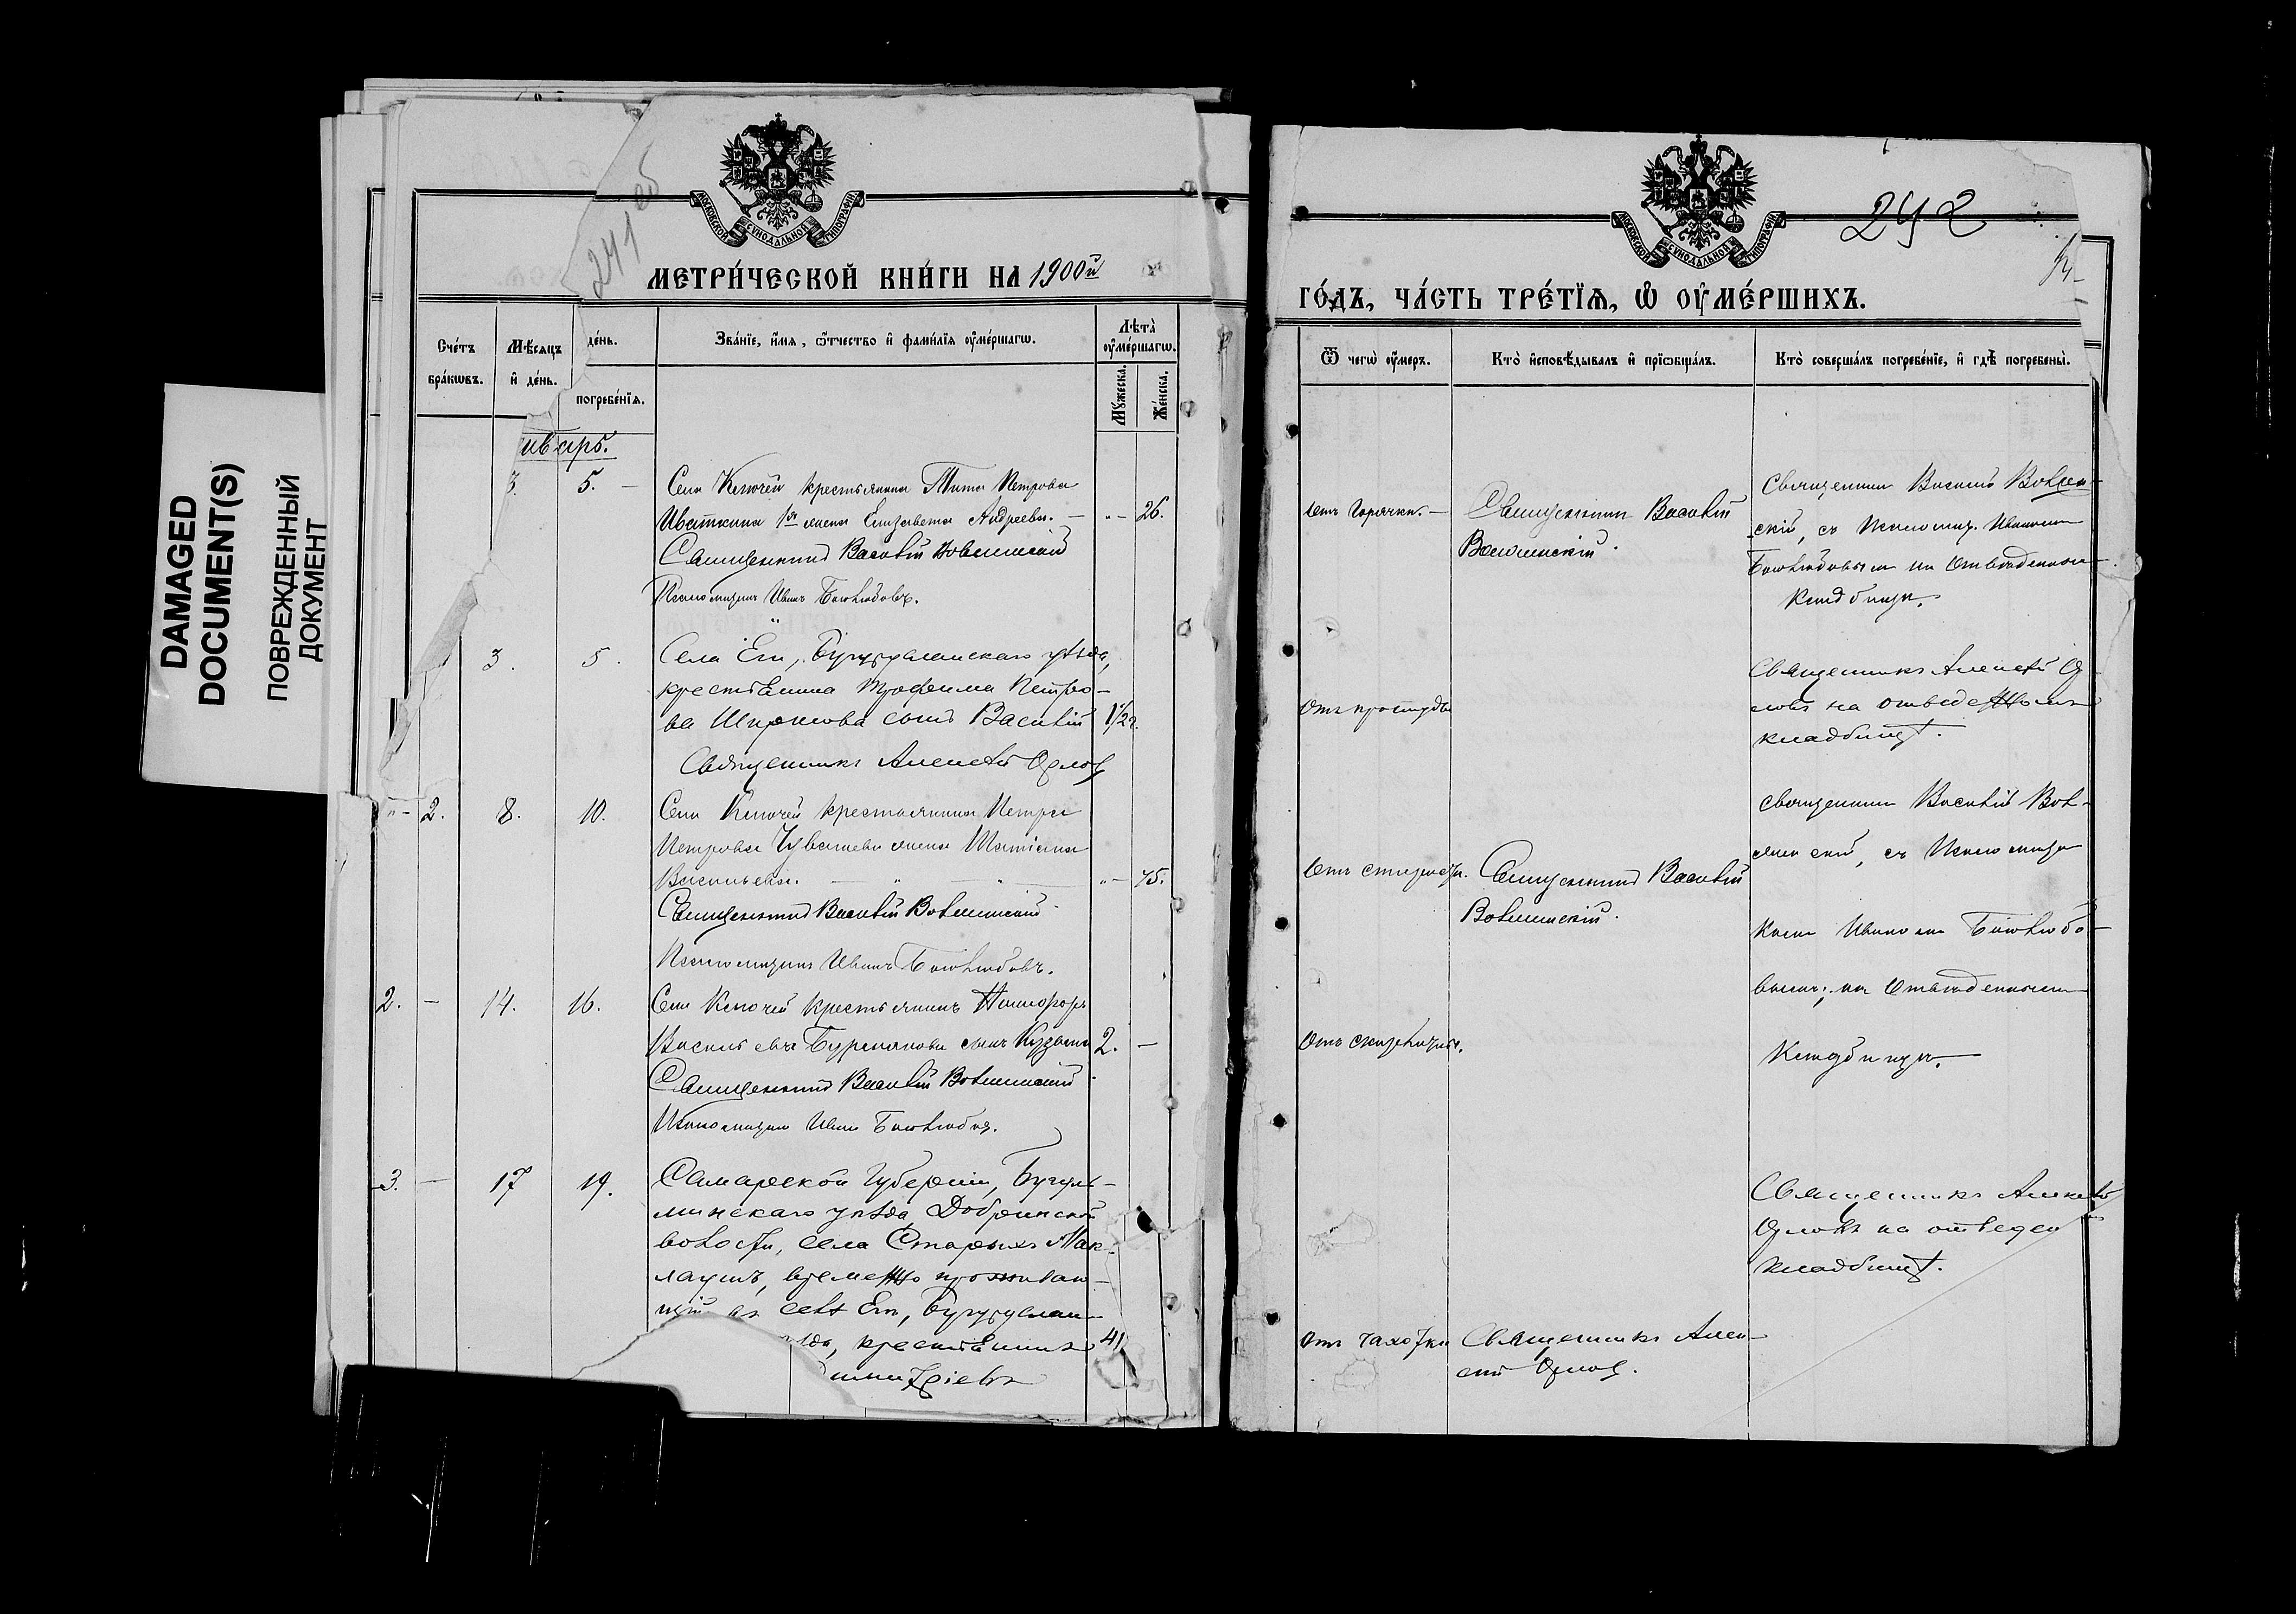 DAMAGED
DOCUMENT(S)
ПОВРЕЖДЕННЫЙ
ДОКУМЕНТ
241 об
МОСКОВСКОЙ СУНОДАЛЬНОЙ ТИПОГРАФІИ
МЕТРИ́ЧЕСКОЙ КНИ́ГИ НА 1900й
Сче́тъ
бра́кѡвъ.
Мѣ́сяцъ
и҆ де́нь.
де́нь.
погребе́нїя.
Зва́нїе, и҆́мя, ѻ҆́тчество и҆ фами́лїя ᲂу҆ме́ршагѡ.
Лѣта̀
ᲂу҆ме́ршагѡ.
Мꙋ́жеска.
Же́нска.
нварь.
3. 5. –
Села Ключей крестьянина Тита Петрова
Ивашкина 1я жена Елизавета Андреева. – „– 26.
Священникъ Василій
Псаломщикъ Иванъ Боголюбовъ.
3. 5.
Села Ёги, Бугурусланскаго уѣзда,
крестьянина Трофима Петро–
ва сынъ Василій 1½ г.
Священникъ Алексѣй Орловъ
„– 2. 8. 10.
Села Ключей крестьянина Петра
Петрова Чувашева жена Татіана
Васильева. – „ – „– 75.
Священникъ Василій
Псаломщикъ Иванъ Боголюбовъ.
2. – 14. 16.
Села Ключей крестьянинъ Никифоръ
Васильевъ сынъ Кузьма 2. –
Священникъ Василій
Псаломщикъ Иванъ Боголюбовъ.
3. – 17 19.
Самарской Губерніи, Бугуль–
минскаго уѣзда, Добринской
волости, села Старыхъ Мак–
лаушъ, временно проживаю–
щій въ селѣ Ёги, Бугуруслан–
ѣзда, крестьянинъ 41
митріевъ
МОСКОВСКОЙ СУНОДАЛЬНОЙ ТИПОГРАФІИ
242
ГО́ДЪ, ЧА́СТЬ ТРЕ́ТЇѦ, Ѡ҆ ОУ҆МЕ́РШИХЪ.
Ѿ чегѡ̀ ᲂу҆́меръ.
Кто̀ и҆сповѣ́дывалъ и҆ прїѡбща́лъ.
Кто̀ соверша́лъ погребе́нїе, и҆ гдѣ̀ погребены̀.
Отъ горячки. –
Священникъ Василій
Священникъ Василій
скій, съ Псаломщ. Иваномъ
Боголюбовымъ на отведенномъ
кладбищѣ.
Отъ простуды
Священникъ Алексѣй Ор–
ловъ на отведенномъ
кладбищѣ.
Отъ старости.
Священникъ Василій
Священникъ Василій
скій, съ Псаломщи–
комъ Иваномъ Боголюбо–
вымъ; на отведенномъ
кладбищѣ.
Отъ скарлатины.
Отъ чахотки
Священникъ Алек–
сѣй Орловъ.
Священникъ Алексѣй
Орловъ на отведен
кладбищѣ.